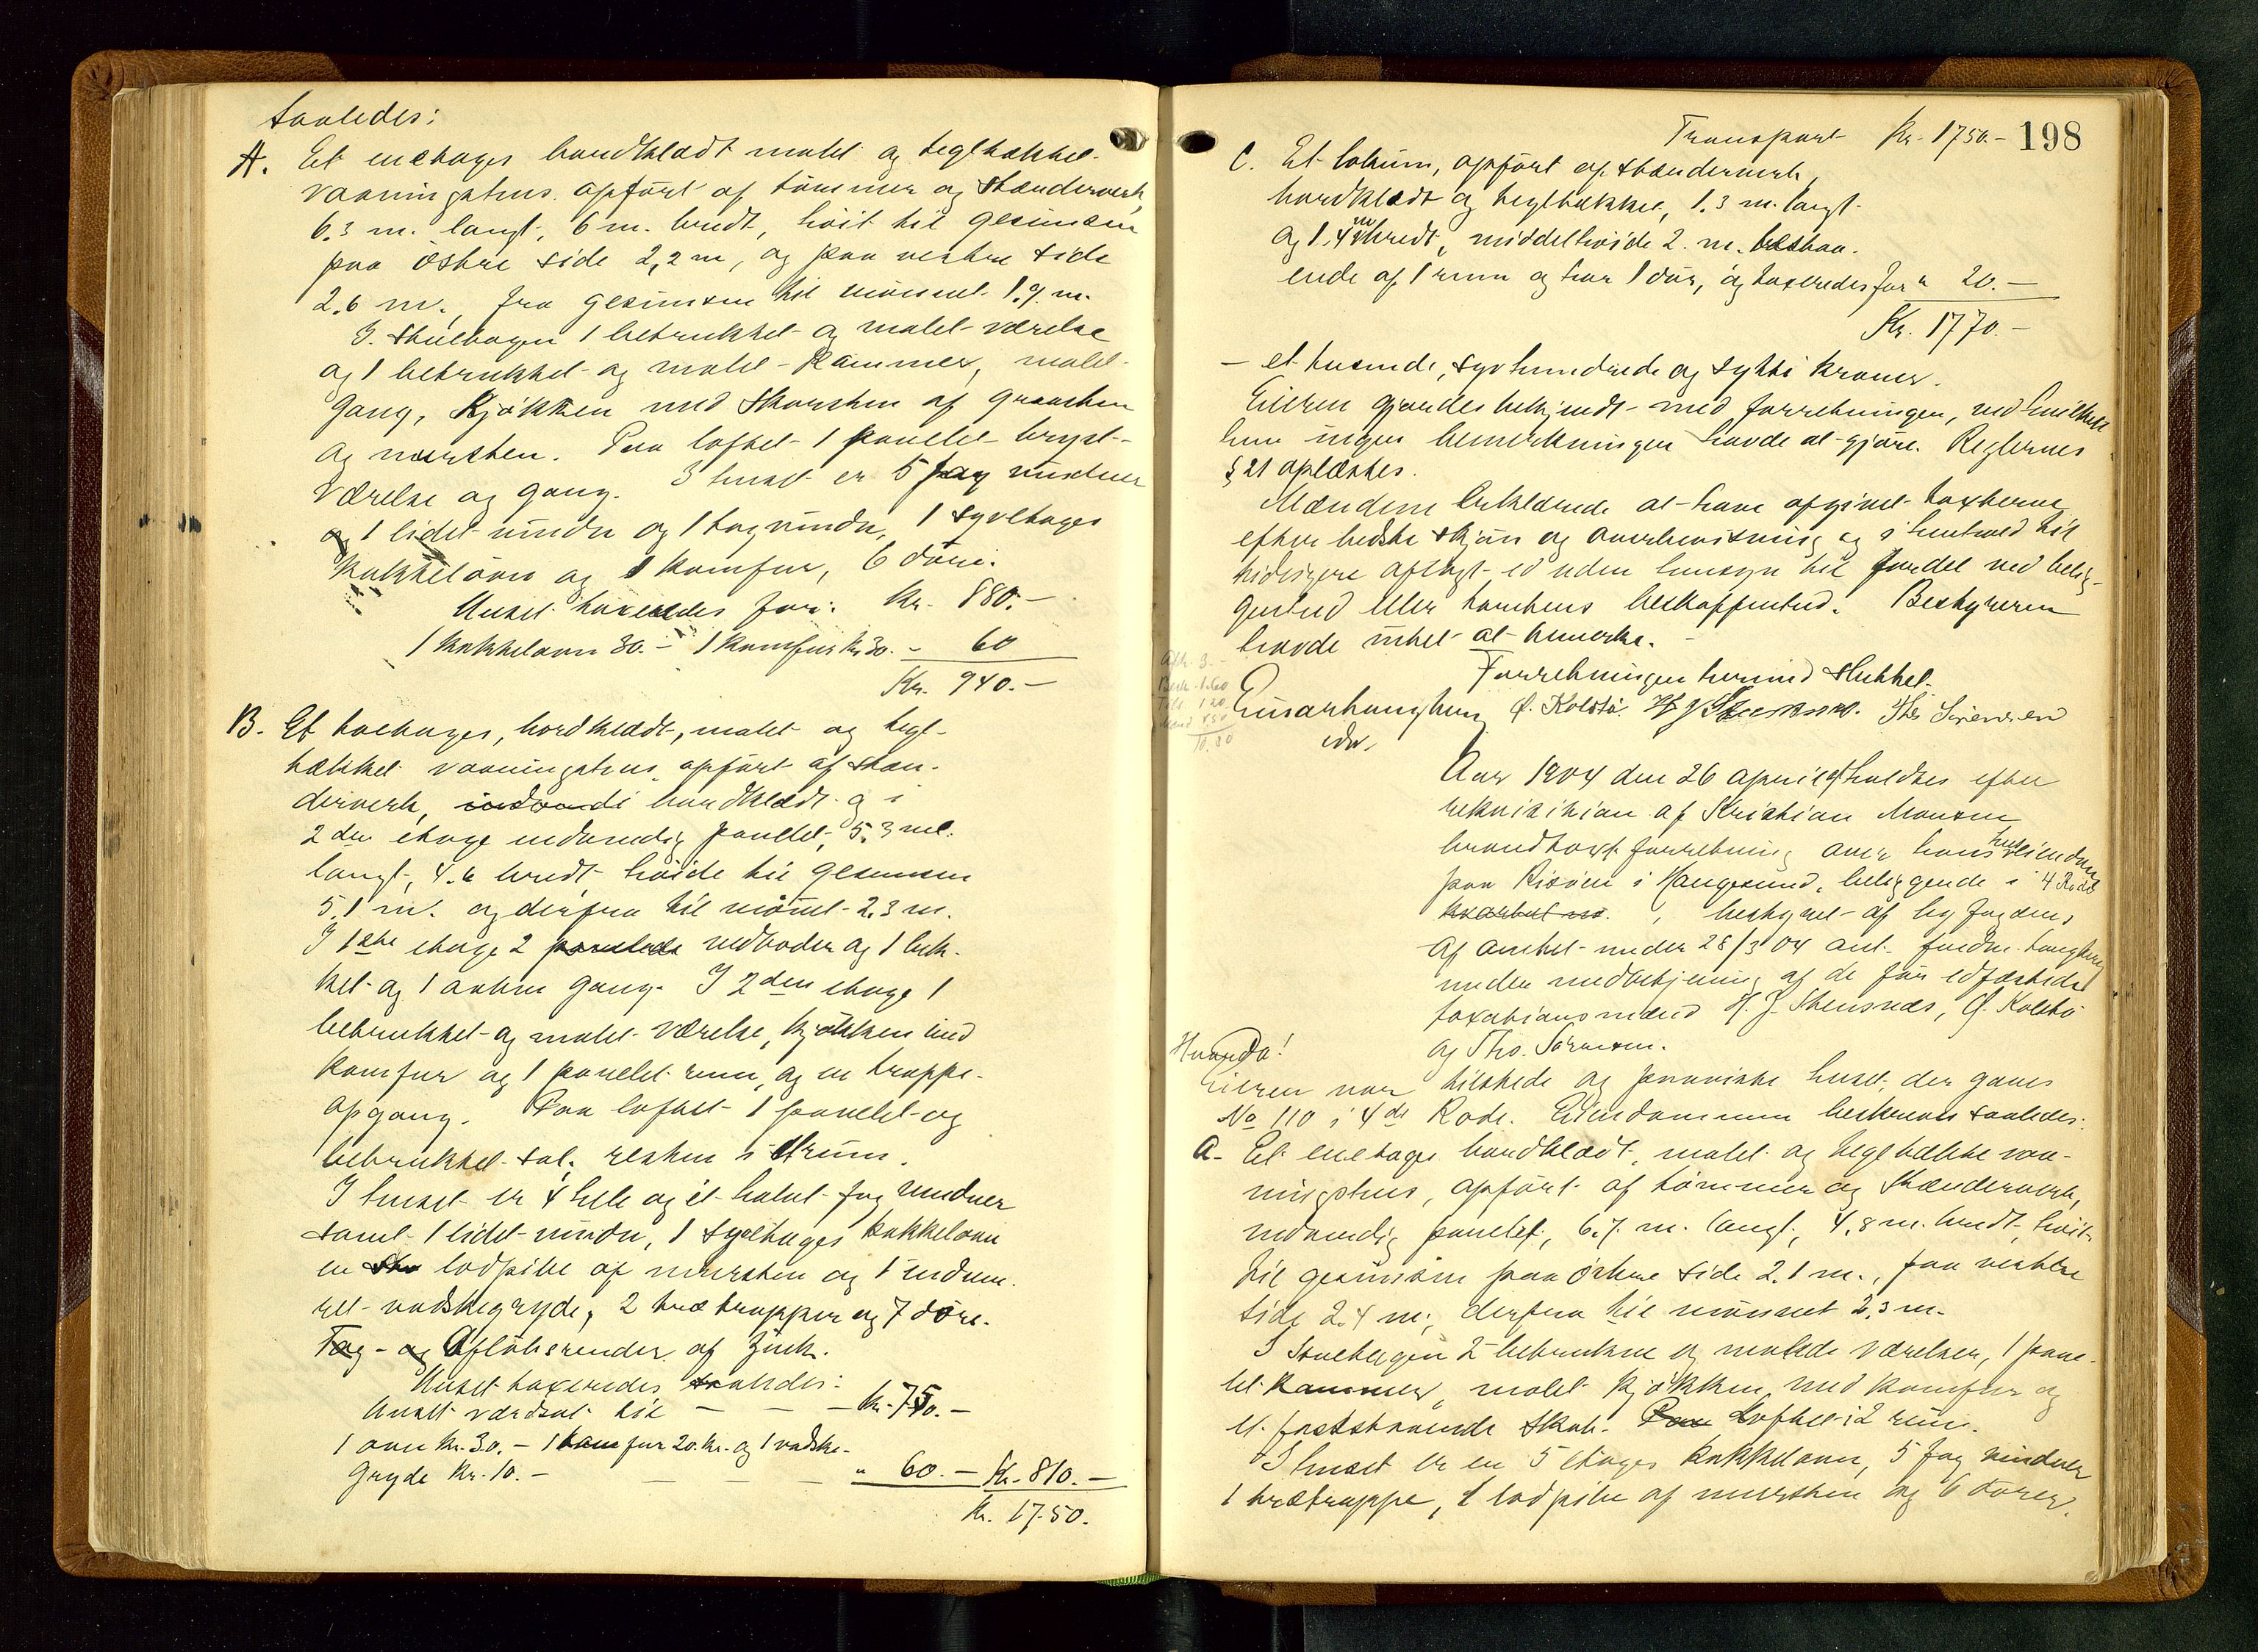 saaledes:
A. Et enetages bordklædt malet og tegltækket
vaaningshus opført af tømmer og stænderverk,
6.3 m. langt, 6 m. bredt, høit til gesimsen
paa østre side 2,2 m, og paa vestre side
2.6 m., fra gesimsen til mønnet 1.9 m.
I stueetagen 1 betrukket og malet værelse
og 1 betrukket og malet kammer, malet
gang, kjøkken med skorsten af graasten
og mursten. Paa loftet 1 panelet kvist-
værelse og gang. I huset er 5 fag vinduer
og 1 lidet vindu og 1 tagvindu, 1 syvetages
kakkelovn og 1 komfur, 6 døre.
Huset taxeredes for: Kr. 880.-
1 kakkelovn 30.- 1 komfur kr 30. - 60
Kr. 940.-
B. Et toetages, bordklædt, malet og tegl-
tækket vaaningshus, opført af stæn-
derverk, bordklædt og i
2den etage indvendig panelet, 5.3 m.
langt, 4.6 bredt, høide til gesimsen
5.1 m. og derfra til mønet 2.3 m.
I 1ste etage 2 vedboder og 1 luk-
ket og 1 aaben gang. I 2den etage 1
betrukket og malet værelse, kjøkken med
komfur og 1 panelet rum, og en trappe-
opgang. Paa loftet 1 panelet og
betrukket sal, resten i et rum.
I huset er 4 hele og et halvt fag vinduer
samt 1 lidet vindu, 1 syvetages kakkelovn
en lodpibe af mursten og 1 indmu-
ret vadskegryde, 2 trætrapper og 7 døre.
Tag- og Afløbsrender af zink.
Huset taxeredes saaledes:
Huset værdsat til - - - kr. 750.-
1 ovn kr. 30.- 1 komfur 20 kr. og 1 vadske-
gryde kr. 10.- " 60.- Kr. 810.-
Kr. 1750.
198
Transport Kr. 1750.-
C. Et lokum, opført af stænderverk,
bordklædt og tegltækket, 1.3 m. langt
og 1.4 m bredt, middelhøide 2. m. bestaa-
ende af 1 rum og har 1 dør, og taxeredes for " 20.-
Kr. 1770.-
- et tusinde, syv hundrede og sytti kroner.
Eieren gjordes bekjendt med forretningen, ved hvilken
han ingen bemerkninger havde at gjøre. Reglernes
§ 21 oplæstes.
Mændene erklærede at have afgivet taxterne
efter bedste skjøn og overbevisning og i henhold til
tidligere aflagt ed uden hensyn til fordel ved belig-
genhed eller tomtens beskaffenhed. Bestyreren
havde intet at bemerke.
Forretningen hermed sluttet.
Einar Langberg Ø. Kolstø. H J Stensnæs. Ths Sørensen
edv.
Aar 1904 den 26 april afholdtes efter
rekvisition af Kristian Monsen
brandtaxtforretning over hans huseiendom
paa Risøen i Haugesund, beliggende i 4 Rode
, bestyret af byfogden,
af amtet under 28/3 04 ant. fuldm. Langberg
under medbetjening af de før edfæstede
taxationsmænd H. J. Stensnæs, Ø. Kolstø
og Tho. Sørensen.
Eieren var tilstede og paaviste huset, der gaves
No 110 i 4de Rode. Eiendommen beskreves saaledes:
a. Et enetages bordklædt, malet og tegltækket vaa-
ningshus, opført af tømmer og stænderverk,
indvendig panelet, 6.7. m. langt, 4.8 m. bredt, høit
til gesimsen paa østre side 2.1 m., paa vestre
side 2.4 m; derfra til mønnet 2.3 m.
I Stueetagen 2 betrukne og malede værelser, 1 pane-
let kammer, malet kjøkken med komfur og
et faststaaende skab. Loftet i 2 rum.
I huset er en 5 etages kakkelovn, 5 fag vinduer
1 trætrappe, 1 lodpibe af mursten og 6 dører.